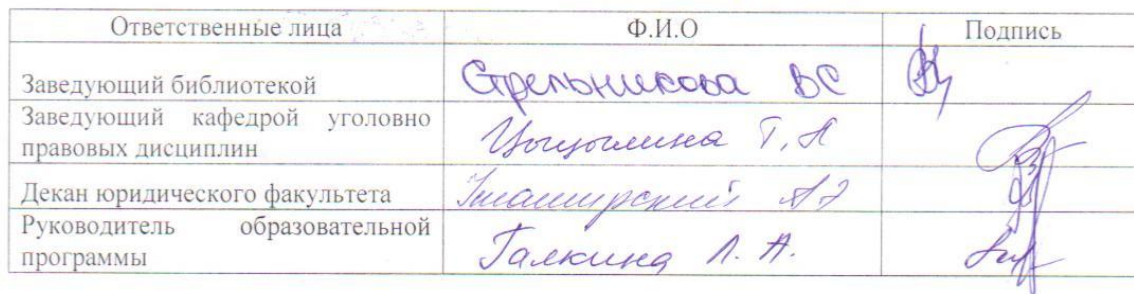 Ответственные лица Ф.И.О Подпись
Заведующий библиотекой Стрельникова ВС
Заведующий кафедрой уголовно
правовых дисциплин Т.А
Декан юридического факультета
Руководитель образовательной
программы Галкина Л. А.